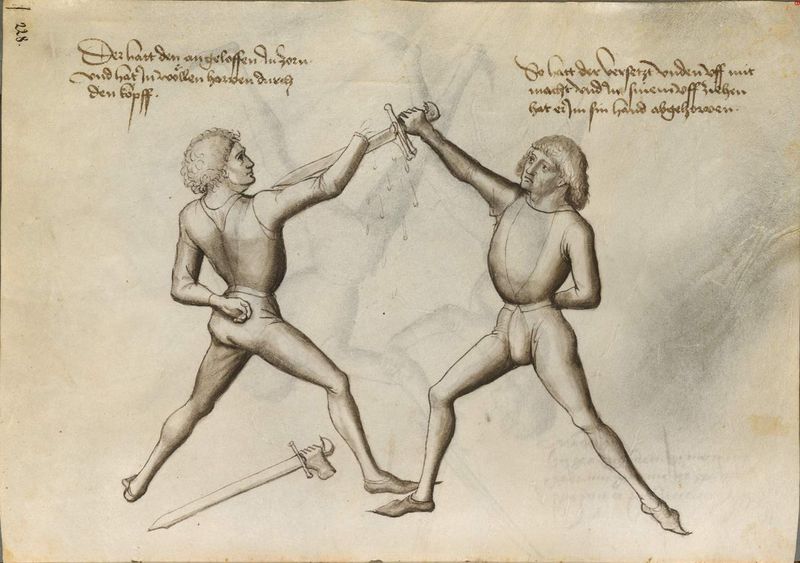 228.
Der hatt den angeloffen Im zorn
vnd hat In wöllen howen durch
den kopff.
So hatt der versetzt vnden vff mit
macht vnd In sinem vff ziehen
hat er Im sin hand abgehowen.